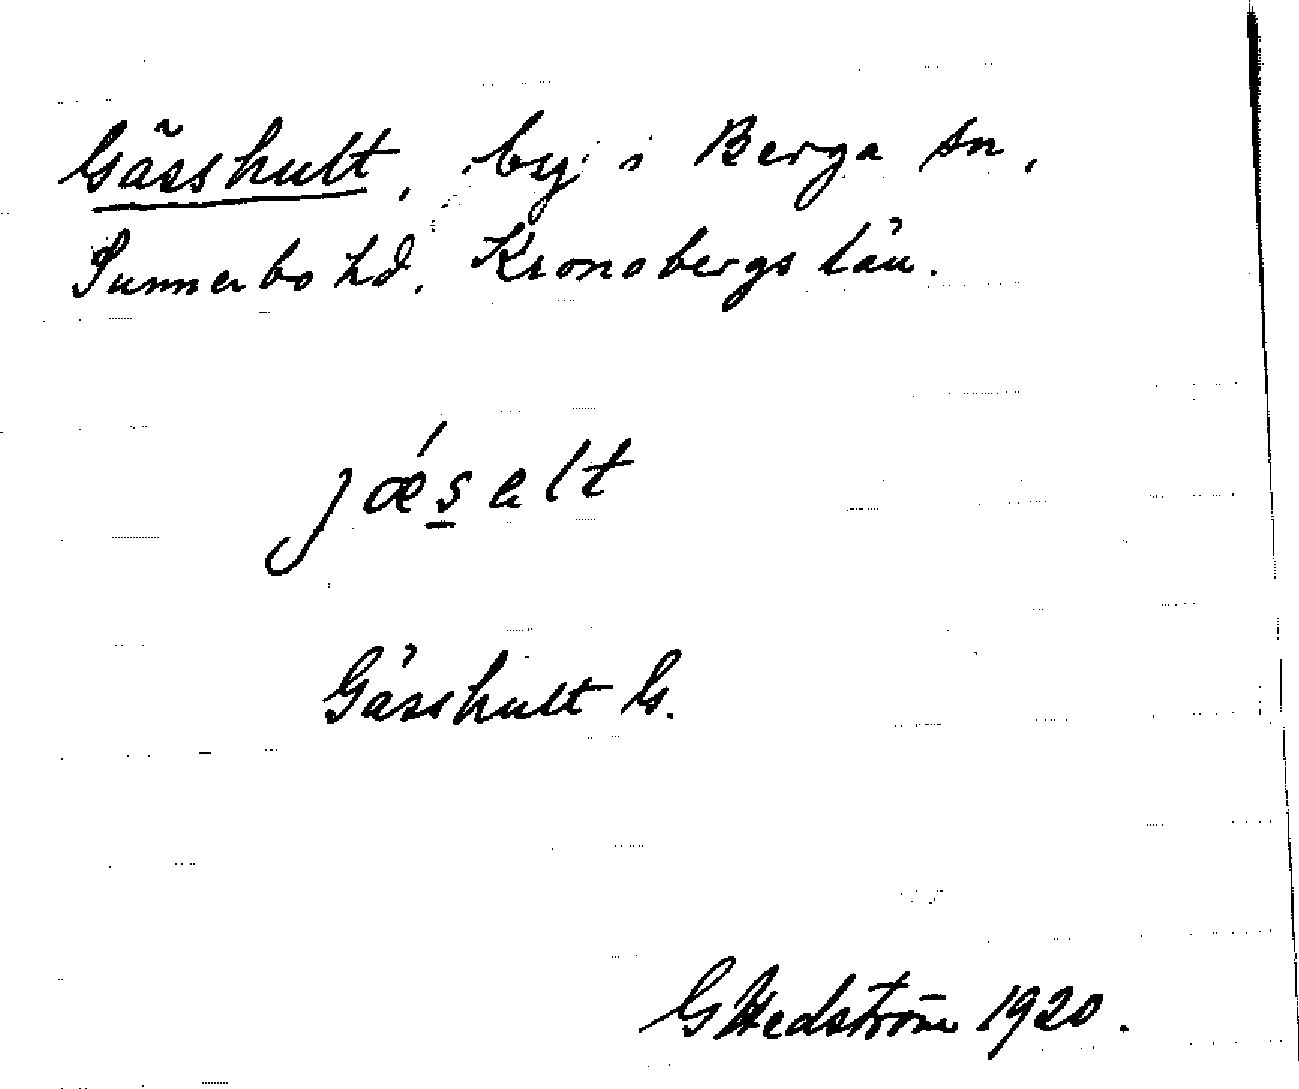 Gässhult, by i Berga sn,
Sunnerbo hd. Kronobergs län.
jǽs̲alt
Gässhult G.
G Hedström 1920.